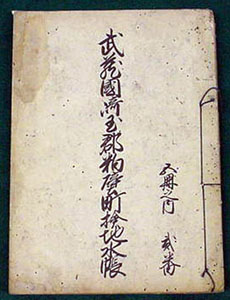 武蔵國埼玉郡粕壁町検地水帳
五冊之内 弐番